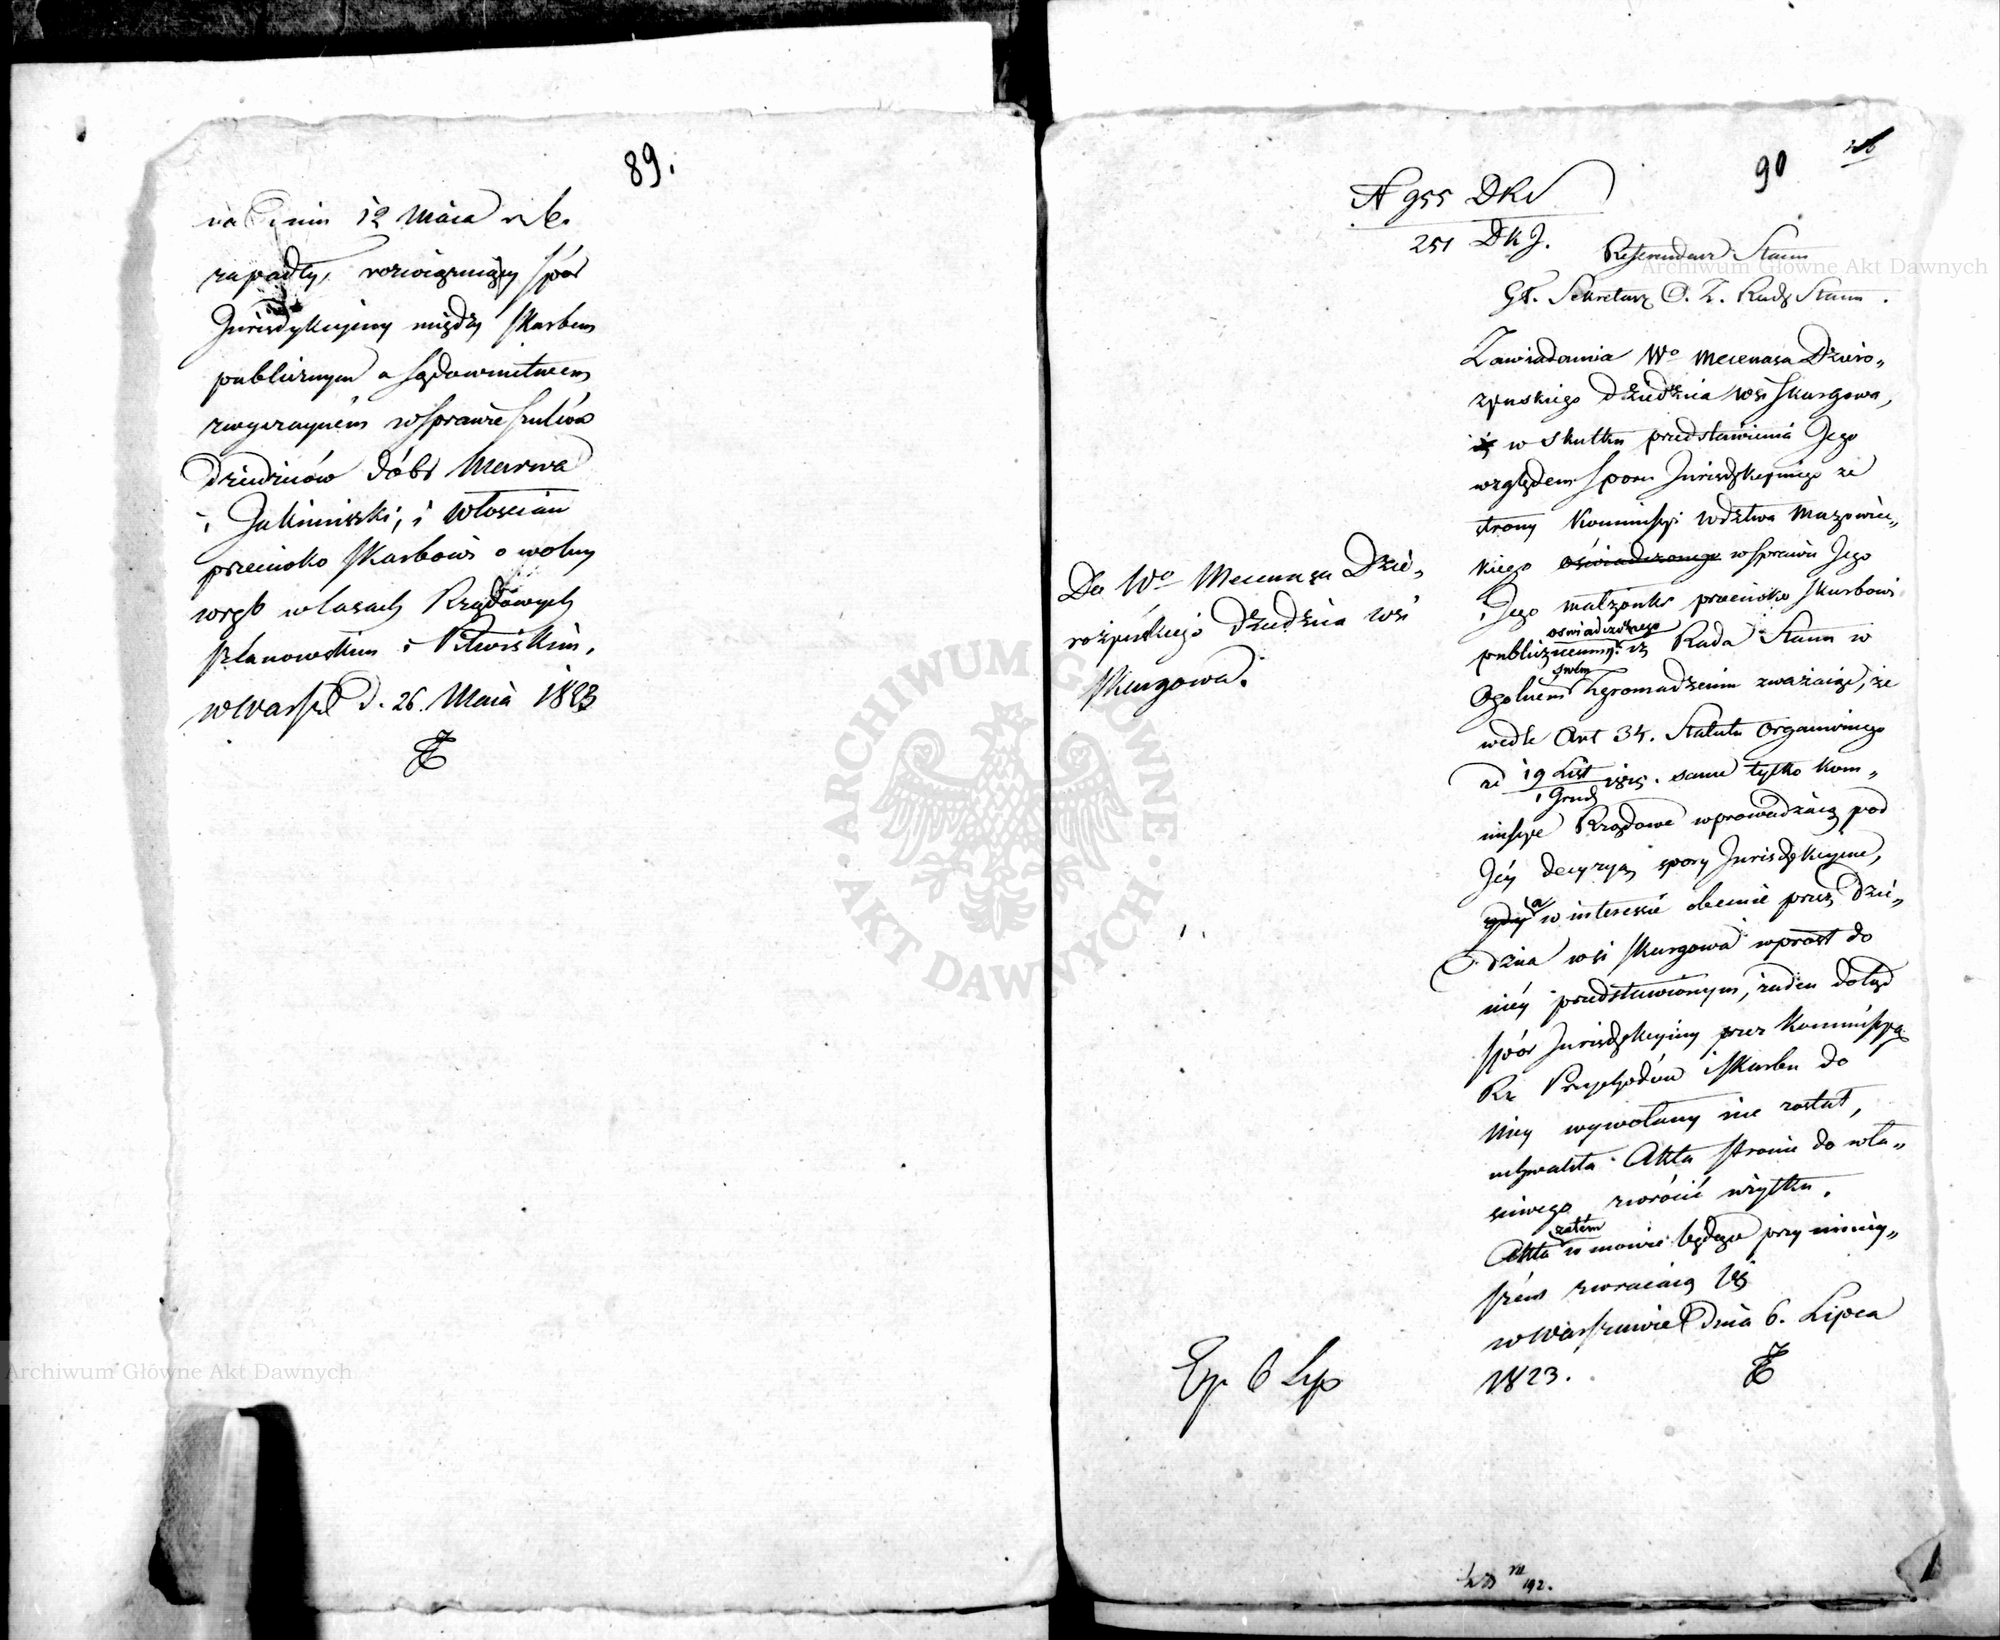 89.
na Dniu 12 Maia r. b.
zapadły, rozwiązuiący spór
Jurisdykcyiny między Skarbem
publicznym a Sądownictwem
zwyczaynem w Sprawie
Dziedziców dóbr Marwa
i Jakimiszki, i Włościan
przeciwko Skarbowi o wolny
wrąb w lasach Rządowych
i Pilwiskim,
w Warsz. d. 26. Maia 1823
90
N 955 DKs
251 DKJ.
Referendarz Stanu
Gł. Sekretarz O. Z. Rady Stanu.
Zawiadamia Wo Mecenasa Dziero„
żyńskiego Dziedzica wsi Skurgowa,
iż w Skutku przedstawienia Jego
względem Sporu Jurisdykcyinego ze
strony Kommissyi Wdztwa Mazowiec„
kiego oświadczonego w Sprawie Jego
i Jego małżonki przeciwko Skarbowi
oświadczonego
publicznemu, iż Rada Stanu w
swem
Ogólnem Zgromadzeniu zważaiąc, że
wedle Art 34. Statutu Organicznego
ze 19 List 1815. same tylko Kom„
1 Grud
missye Rządowe wprowadzaią pod
Jéy decyzyą spory Jurisdykcyine,
gdy a w interesie obecnie przez Dzie„
dzica wsi Skurgowa wprost do
niéy przedstawionym, żaden dotąd
spór Jurisdykcyiny przez Kommissyą
Rz Przychodów i Skarbu do
Niey wywołany nie został,
uchwaliła Akta stronie do wła„
ściwego zwrócić użytku.
zatém
Akta w mowie będące przy niniey„
szém zwracaią się
w Warszawie dnia 6. Lipca
1823.
Do Wo Mecenasa Dzie„
rożyńskiego Dziedzica wsi
Skurgowa.
Ex 6 Lip
192.
Archiwum Główne Akt Dawnych
Archiwum Główne Akt Dawnych
ARCHIWUM GŁÓWNE · AKT DAWNYCH ·